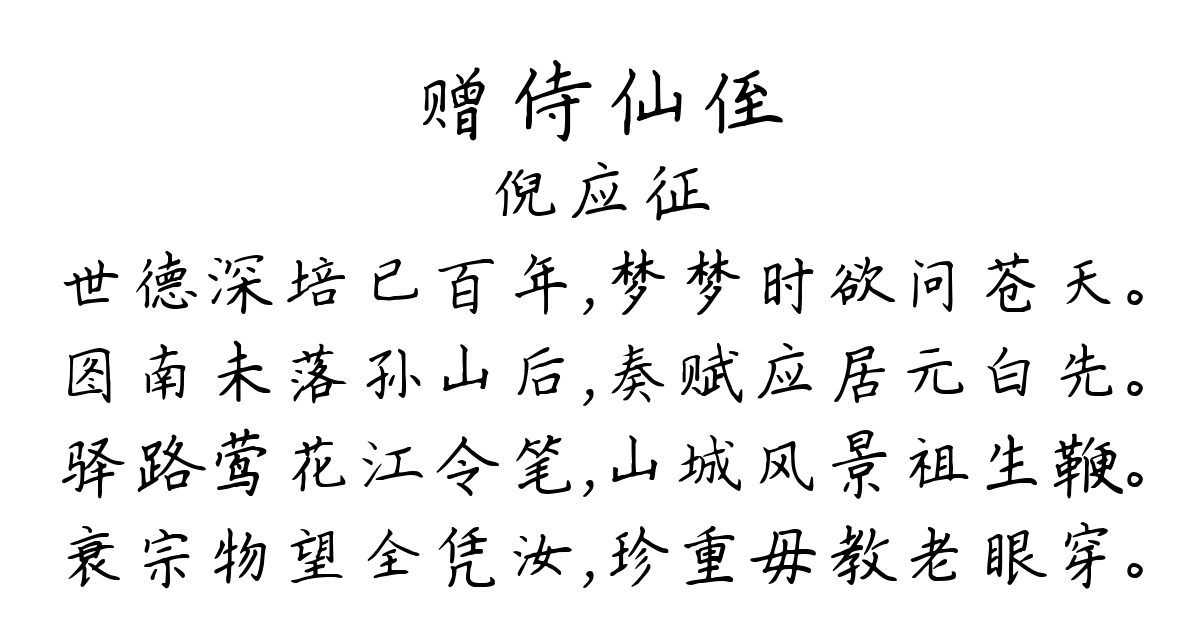 赠侍仙侄
倪应征
世德深培已百年,梦梦时欲问苍天。
图南未落孙山后,奏赋应居元白先。
驿路莺花江令笔,山城风景祖生鞭。
衰宗物望全凭汝,珍重毋教老眼穿。